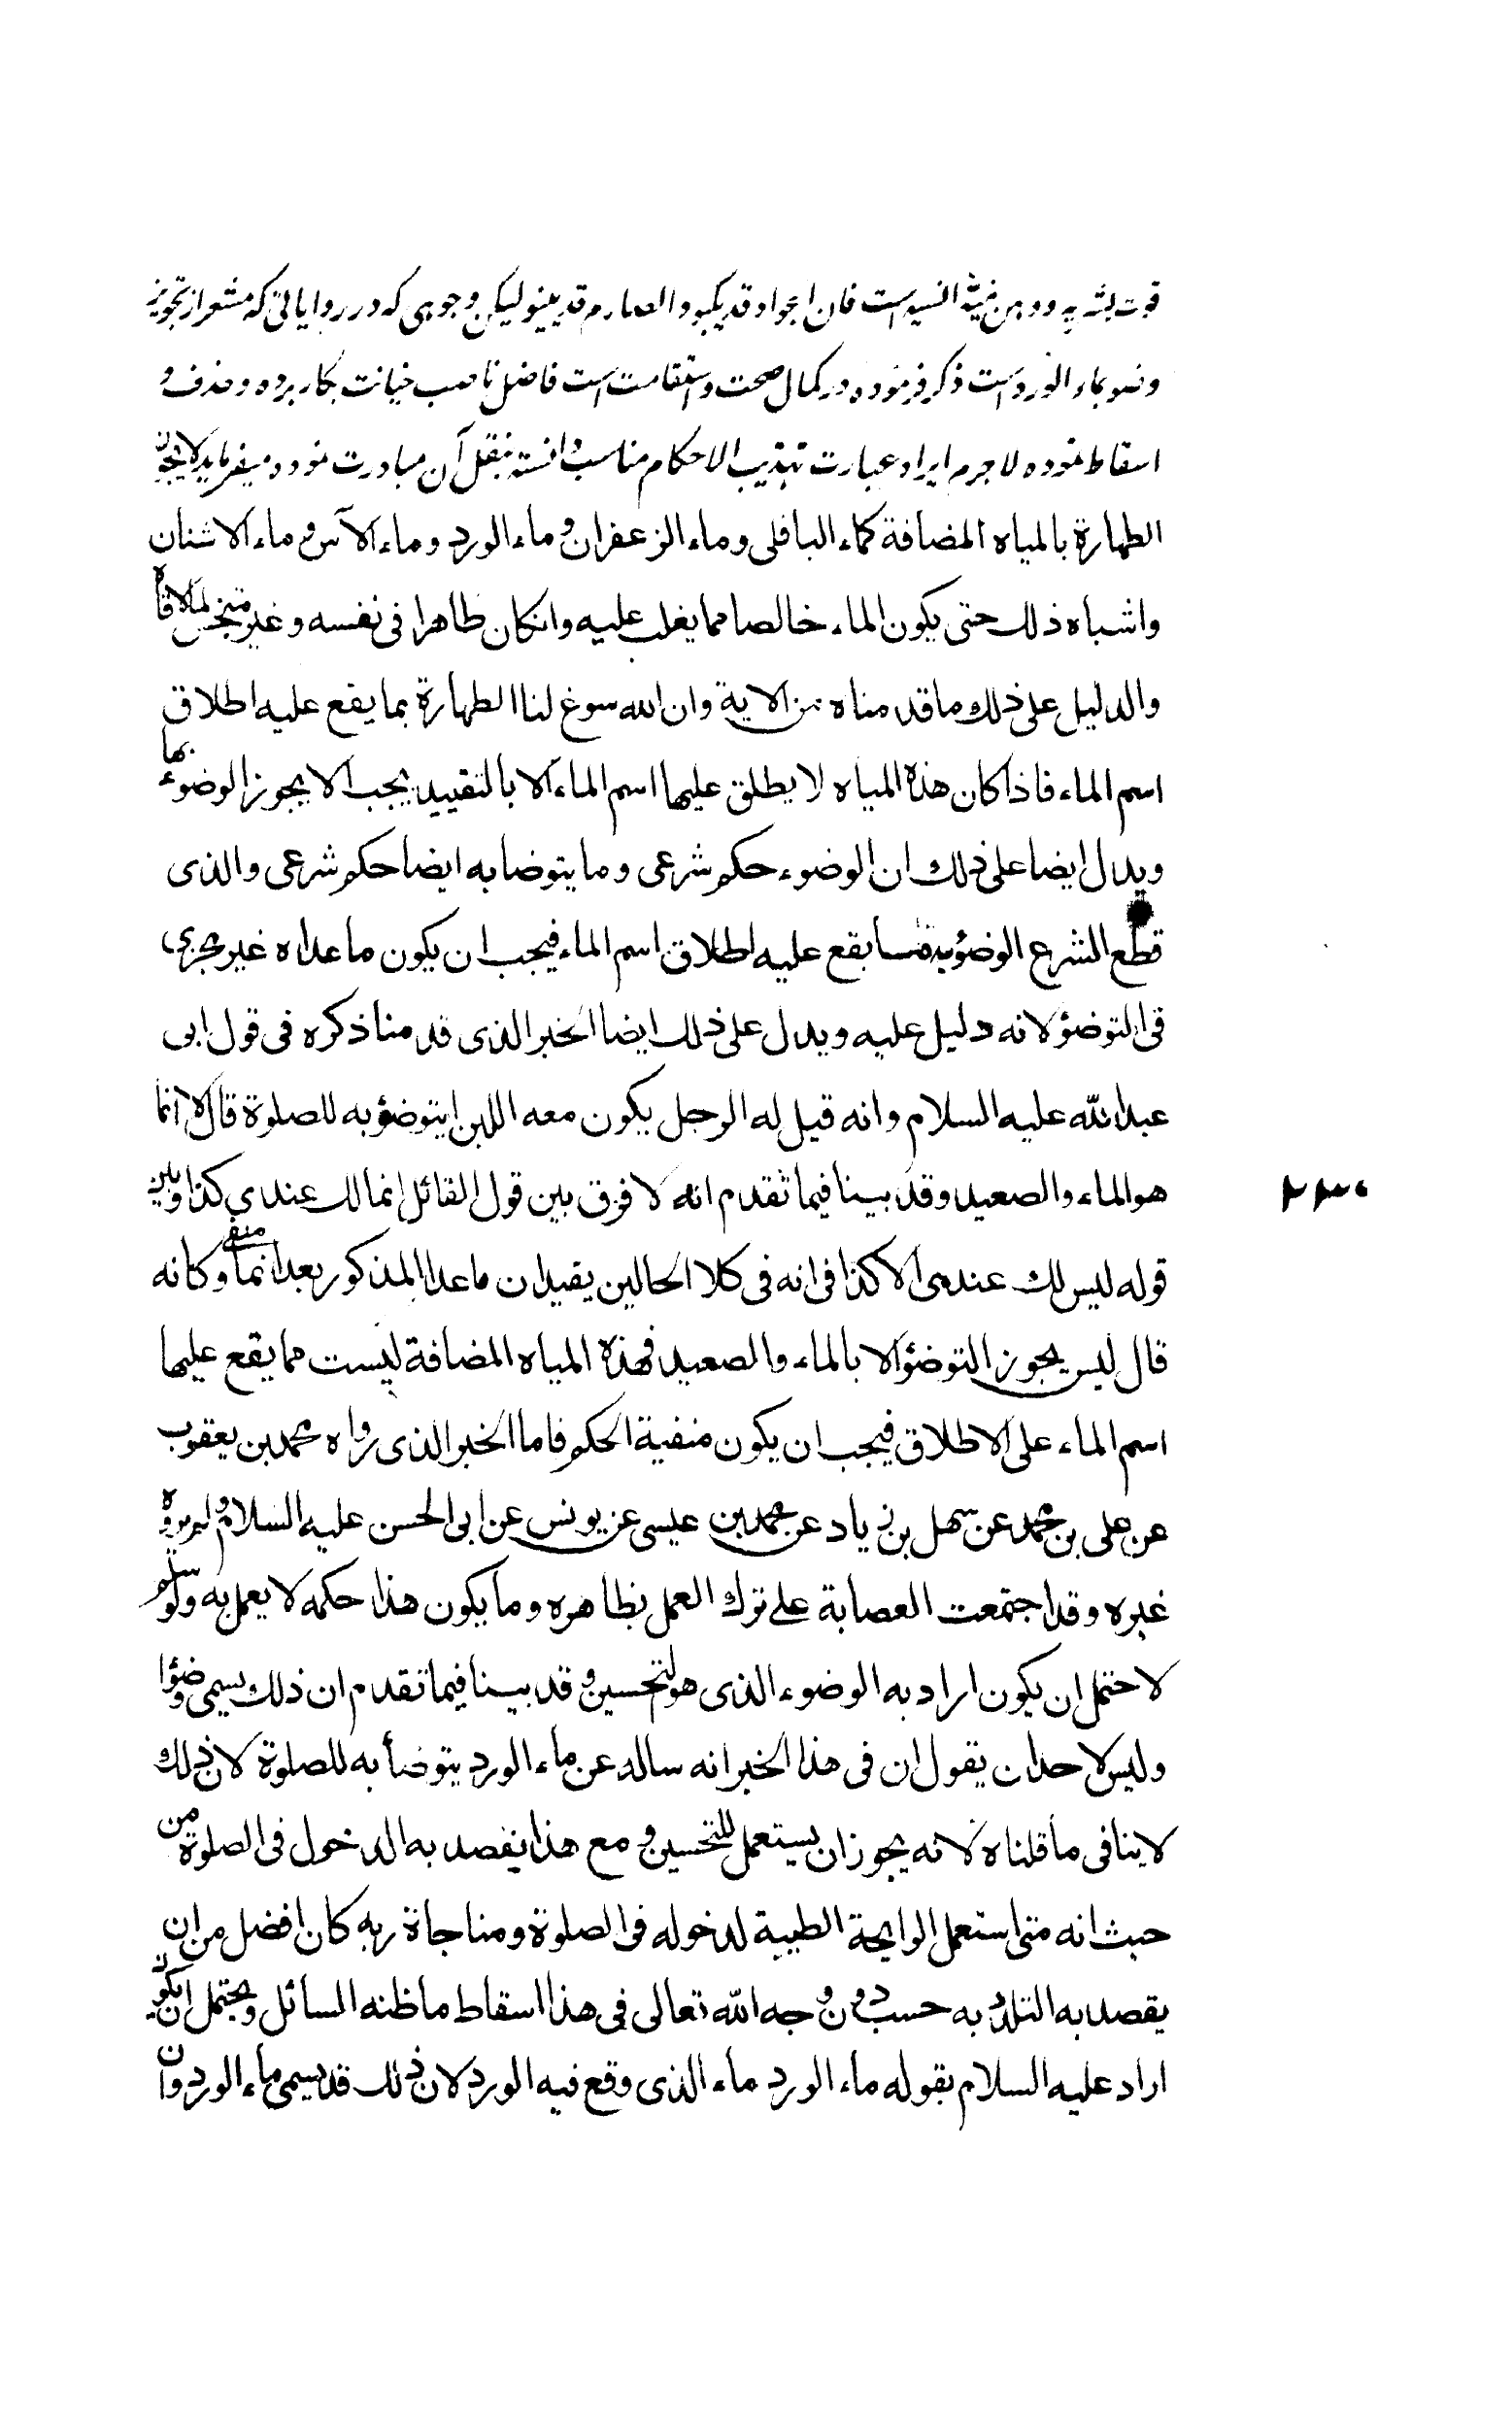 قوت بشریه و وهن نیة انسیه است فان الجواد قد یکبو و الصارم قد ینبو لیکن وجوهی که در روایاتی که مشعر از تجویز
وضو بماء الورد است ذکر فرموده در کمال صحت و استقامت است فاضل ناصب خیانت بکار برده و حذف و
اسقاط نموده لاجرم ایراد عبارت تهذیب الاحکام مناسب دانسته بنقل آن مبادرت نموده میفرماید لا یجوز
الطهارة بالمیاه المضافة کماء الباقلی وماء الزعفران وماء الورد وماء الآس وماء الاشنان
واشباه ذلک حتی یکون الماء خالصا مما یغلب علیه وانکان طاهرا فی نفسه وغیر منجس لما لاقاه
والدلیل علی ذلک ما قدمناه من الایة وان الله سوغ لنا الطهارة بما یقع علیه اطلاق
اسم الماء فاذا کان هذه المیاه لا یطلق علیها اسم الماء الا بالتقیید یجب الا یجوز الوضوء بها
ویدل ایضا علی ذلک ان الوضوء حکم شرعی وما یتوضا به ایضا حکم شرعی والذی
قطع الشرع الوضؤ به ما یقع علیه اطلاق اسم الماء فیجب ان یکون ما عداه غیر مجزی
فی التوضؤ لانه دلیل علیه ویدل علی ذلک ایضا الخبر الذی قدمنا ذکره فی قول ابی
عبدالله علیه السلام وانه قیل له الرجل یکون معه اللبن ایتوضؤ به للصلوة قال لا انما
هو الماء والصعید وقد بینا فیما تقدم انه لا فرق بین قول القائل انما لک عندی کذا وبین
۲۳۰
قوله لیس لک عندی الا کذا فی انه فی کلا الحالین یفیدان ما عدا المذکور بعد انما منفی وکانه
قال لیس یجوز التوضؤ الا بالماء والصعید فهذه المیاه المضافة لیست مما یقع علیها
اسم الماء علی الاطلاق فیجب ان یکون منفیة الحکم فاما الخبر الذی رواه محمد بن یعقوب
عن علی بن محمد عن سهل بن زیاد عن محمد بن عیسی عن یونس عن ابی الحسن علیه السلام ولم یروه
غیره وقد اجتمعت العصابة علی ترک العمل بظاهره وما یکون هذا حکمه لا یعمل به ولو سلم
لاحتمل ان یکون اراد به الوضوء الذی هو لتحسین وقد بینا فیما تقدم ان ذلک یسمی وضؤا
ولیس لاحد ان یقول ان فی هذا الخبر انه ساله عن ماء الورد یتوضأ به للصلوة لان ذلک
لا ینافی ما قلناه لانه یجوز ان یستعمل للتحسین و مع هذا یقصد به الدخول فی الصلوة من
حیث انه متی استعمل الرایحة الطیبة لدخوله فی الصلوة ومناجاة ربه کان افضل من ان
یقصد به التلذذ به حسب دون وجه الله تعالی فی هذا اسقاط ما ظنه السائل ویحتمل ان یکون
اراد علیه السلام بقوله ماء الورد ماء الذی وقع فیه الورد لان ذلک قد یسمی ماء الورد وان